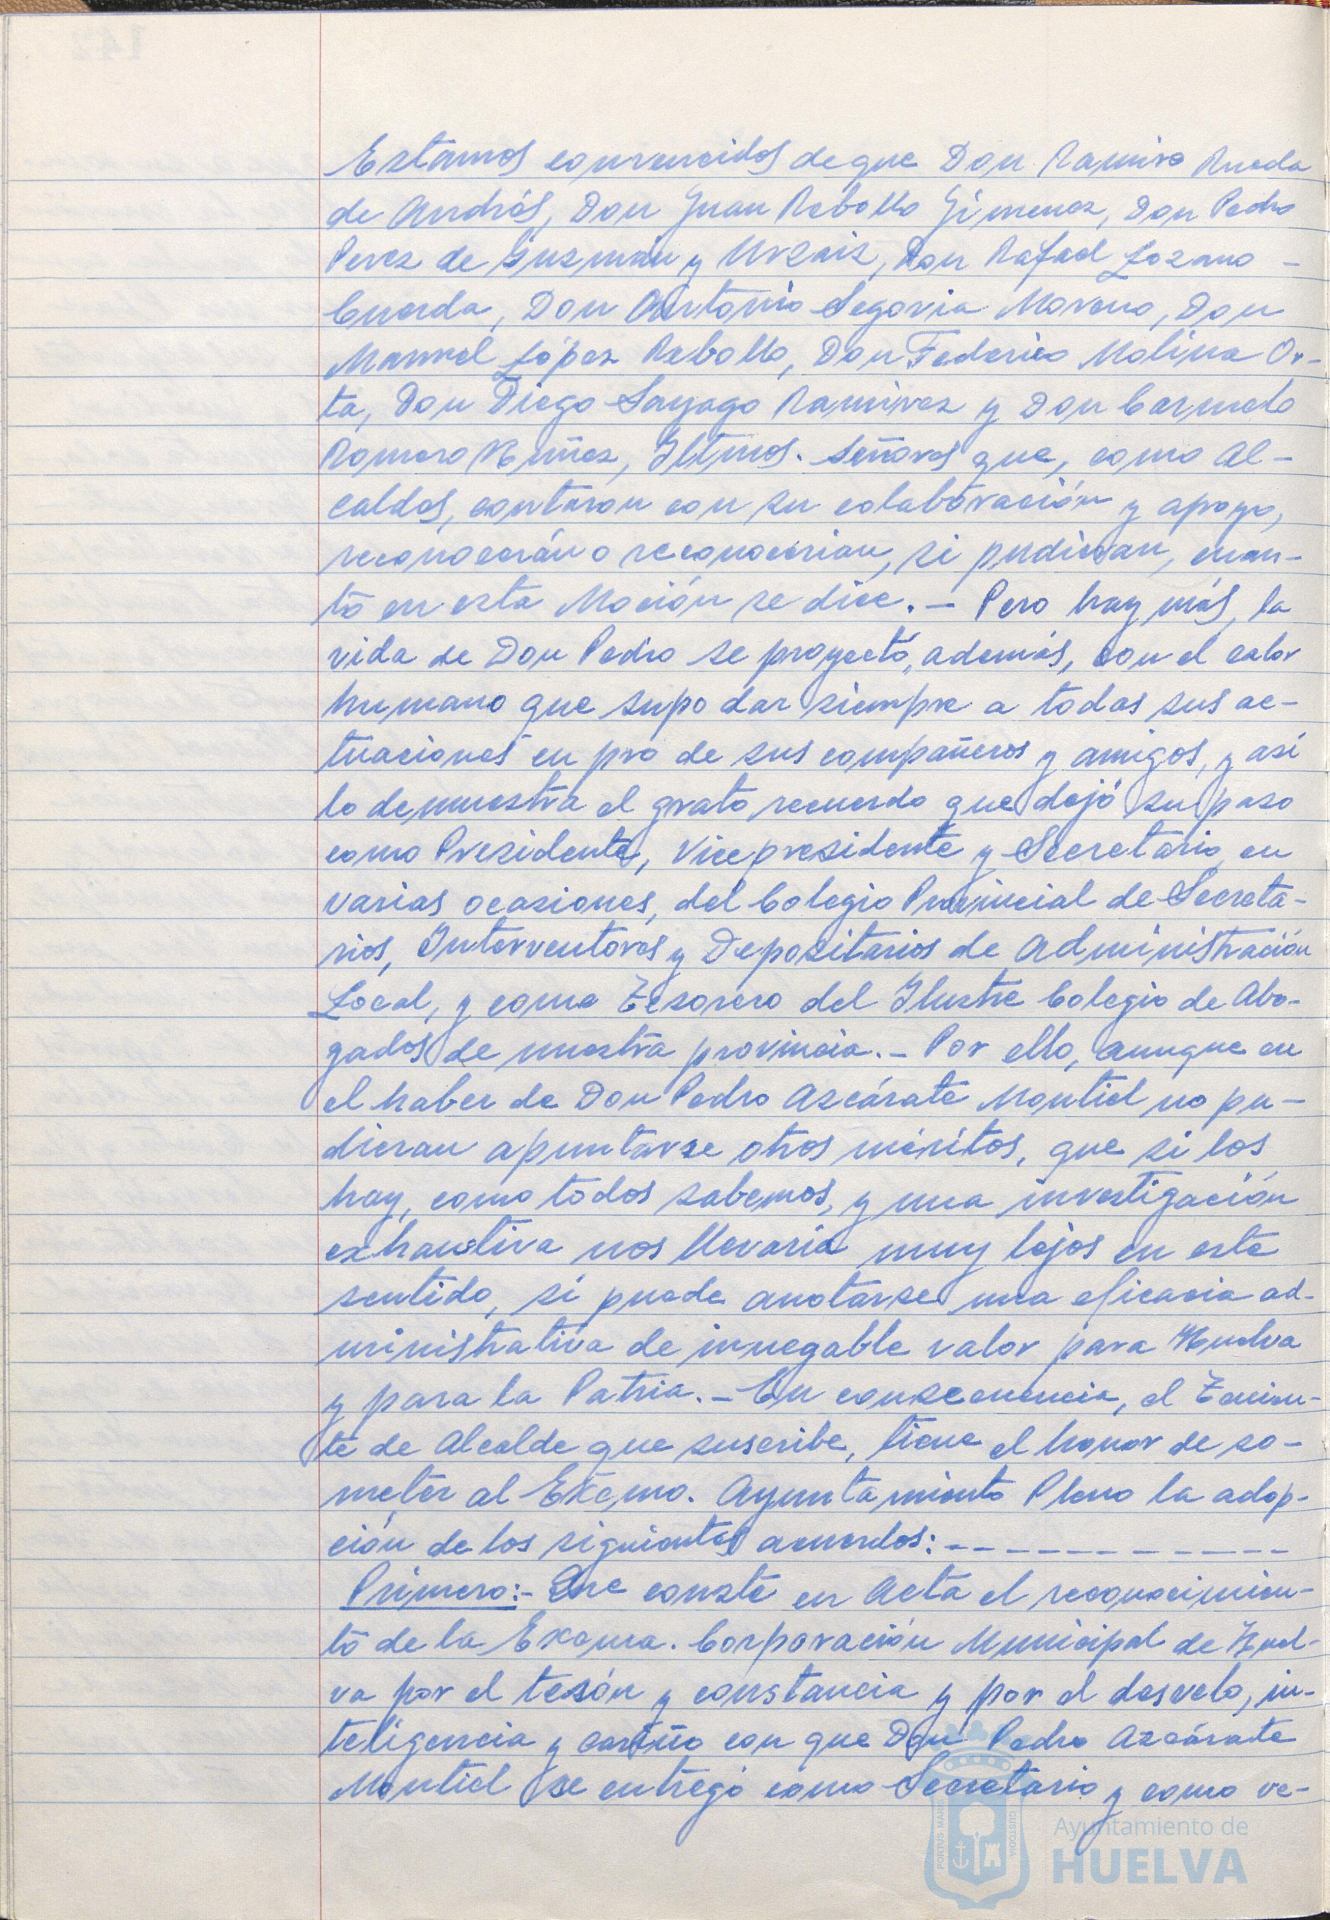 Estamos convencidos de que Don Ramiro Rueda
de Andrés, Don Juan Rebollo Gimenez, Don Pedro
Perez de Guzmán y Urzaiz, Don Rafael Lozano
Cuerda, Don Antonio Segovia Moreno, Don
Manuel López Rebollo, Don Federico Molina Or-
ta, Don Diego Sayago Ramírez y Don Carmelo
Romero Núñez, Iltmos. Señores que, como Al-
caldes, contaron con su colaboración y apoyo,
reconocerán o reconocerían, si pudieran, cuan-
to en esta Moción se dice.- Pero hay más, la
vida de Don Pedro se proyectó, además, con el calor
humano que supo dar siempre a todas sus ac-
tuaciones en pro de sus compañeros y amigos, y así
lo demuestra el grato recuerdo que dejó su paso
como Presidente, Vicepresidente y Secretario, en
varias ocasiones, del Colegio Provincial de Secreta-
rios, Interventores y Depositarios de Administración
Local, y como Tesorero del Ilustre Colegio de Abo-
gados de nuestra provincia.- Por ello, aunque en
el haber de Don Pedro Azcárate Montiel no pu-
dieran apuntarse otros méritos, que si los
hay, como todos sabemos, y una investigación
exhaustiva nos llevaría muy lejos en este
sentido, sí puede anotarse una eficacia ad-
ministrativa de innegable valor para Huelva
y para la Patria.- En consecuencia, el Tenien-
te de Alcalde que suscribe, tiene el honor de so-
meter al Excmo. Ayuntamiento Pleno la adop-
ción de los siguientes acuerdos:- - - - - - - - - - - -
Primero:- Que conste en Acta el reconocimien-
to de la Excma. Corporación Municipal de Huel-
va por el tesón y constancia y por el desvelo, in-
teligencia y cariño con que Don Pedro Azcárate
Montiel se entregó como Secretario y como ve-
PORTUS MARIS
CUSTODIA
Ayuntamiento de
HUELVA